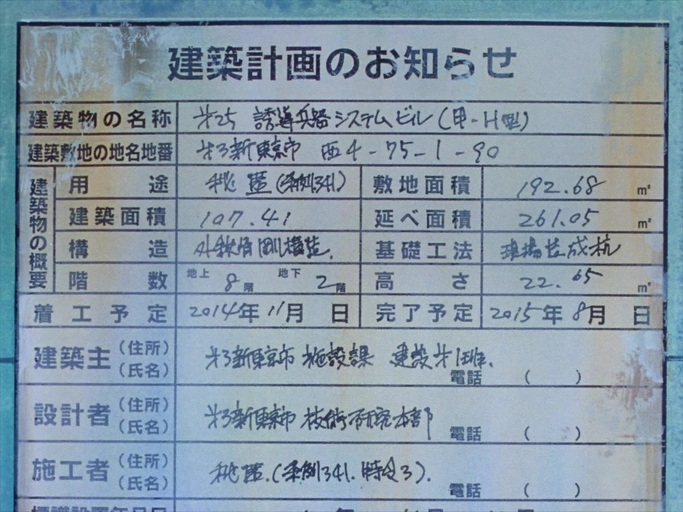 建築計画のお知らせ
建築物の名称 第25 誘導兵器システムビル(甲-H型)
建築敷地の地名地番 第3新東京市 西4-75-1-90
建築物の概要
用途 秘匿(条例341) 敷地面積 192.68 m²
建築面積 107.41 延べ面積 261.05 m²
構造 外殻自剛構造 基礎工法 現場造成杭
階数 地上 8階 地下 2階 高さ 22.65 m²
着工予定 2014年11月 日 完了予定 2015年8月 日
建築主 (住所)(氏名) 第3新東京市 施設課 建設第1班. 電話 ( )
設計者 (住所)(氏名) 第3新東京市 技術研究本部 電話 ( )
施工者 (住所)(氏名) 秘匿.(条例341.特令3). 電話 ( )
標識設置年月日